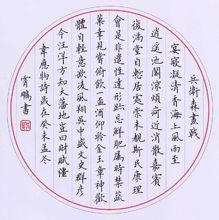 兵衛森畫戟
宴寢凝清香海上風雨至
逍遥池閣涼煩疴近消散嘉賓
復滿堂自慚居處崇未睹斯民康理
會是非遣性達形跡忘鮮肥屬時禁蔬
菓幸見嘗俯飲一盃酒仰聆金玉章神歡
體自輕意欲凌風翔吳中盛文史群彥
今汪洋方知大藩地豈曰財賦强
韋應物詩歲在癸未孟冬
霄鵬書